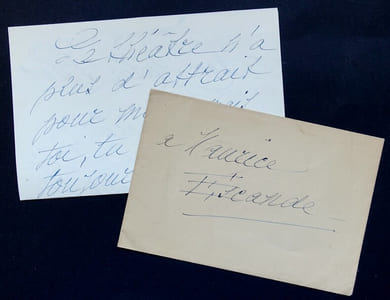 Le théâtre n'a
plus d'attrait
pour m
toi, tu
toujour
a Maurice
Escande